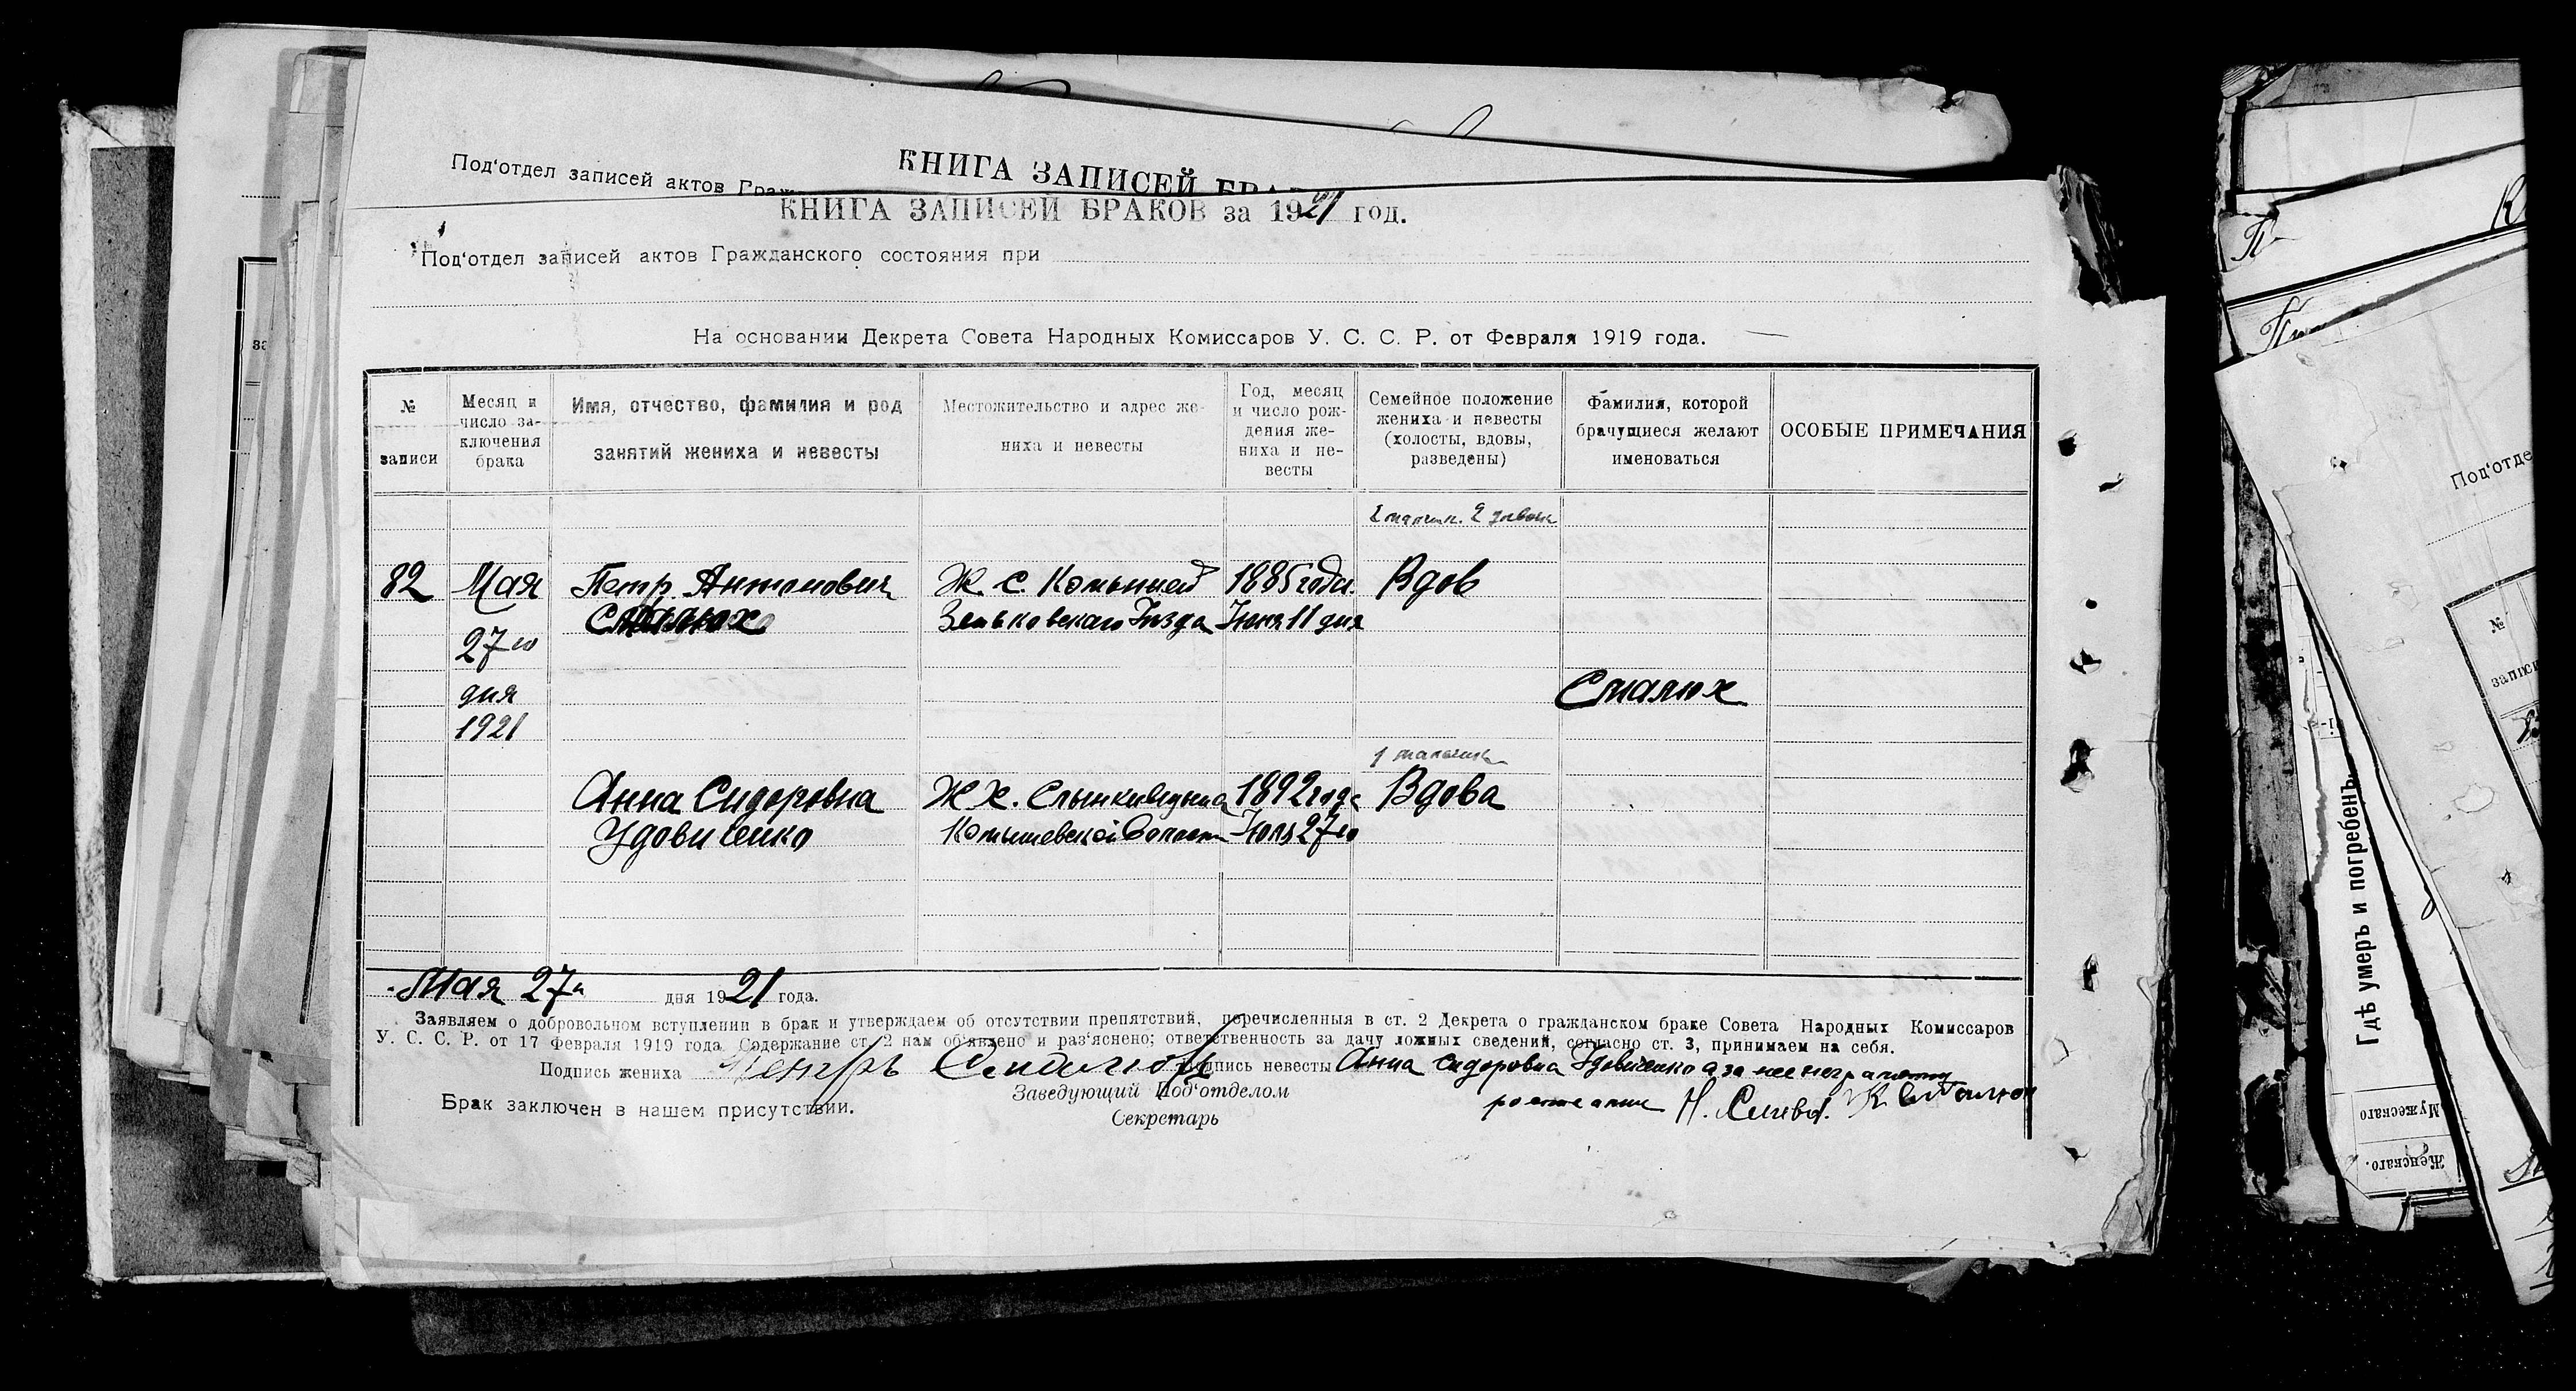 Под'отдел записей актов
КНИГА ЗАПИСЕЙ
КНИГА ЗАПИСЕЙ БРАКОВ за 1921 год.
Под'отдел записей актов Гражданского состояния при
На основании Декрета Совета Народных Комиссаров У. С. С. Р. от Февраля 1919 года.
№ записи
Месяц и число за-
ключения
брака
Имя, отчество, фамилия и род
занятий жениха и невесты
Местожительство и адрес же-
ниха и невесты
Год, месяц
и число рож-
дения же-
ниха и не-
весты
Семейное положение
жениха и невесты
(холосты, вдовы,
разведены)
Фамилия, которой
брачущиеся желают
именоваться
ОСОБЫЕ ПРИМЕЧАНИЯ
82 Мая Петр Антонович Ж. С. 1885 года Вдов
27го Зеньковского Июня 11 дня
дня Сталюх
1921
Анна Сидоровна Ж Х. 1892 года Вдова
Удовиченко 27го
Мая 27 дня 1921 года.
Заявляем о добровольном вступлении в брак и утверждаем об отсутствии препятствий, перечисленныя в ст. 2 Декрета о гражданском браке Совета Народных Комиссаров
У. С. С. Р. от 17 Февраля 1919 года. Содержание ст. 2 нам об'явлено и раз'яснено; ответственность за дачу ложных сведений, согласно ст. 3, принимаем на себя.
Подпись жениха Петръ Сталюхъ Подпись невесты Анна Сидоровна Удовиченко а за нее
Заведующий Под'отделом
Брак заключен в нашем присутствии.
Секретарь
Под'отде
№
Гдѣ умеръ и погребенъ.
Мужескаго
Женскаго.